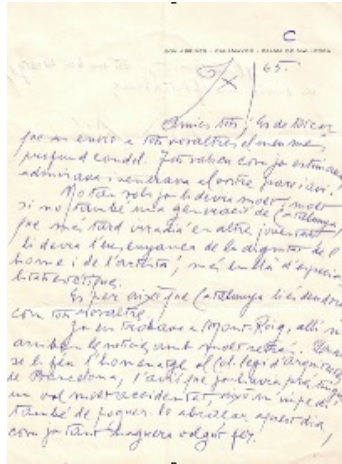 C
SON ABRINES - CALAMAYOR - PALMA DE MALLORCA
/X/65.
Amics tots; és de
que us envio a tots vosaltres el meu més
profund condol. Tots sabeu com jo estimava
admirava i venerava el vostre pare i avi.
No tan sols jo li devia molt, molt
si no també una generació de Catalunya,
que més tard a altre joventut
li deurà l'ensenyança de la dignitat de l'
home i de l'artista, més enllà d'especia
litats
És per això que Catalunya li és deudora
com tots vosaltres.
Jo em trobava a Mont-Roig, allí
arriben les notícies amb molt retràs. Quan
se li féu l'homenatge al Col·legi d'arquitectes
de Barcelona, l'avió que jo havia pres tingué
un vol molt accidentat, això m'impedí
també de poguer-lo abraçar aquest dia,
com jo tant haguera volgut fer.